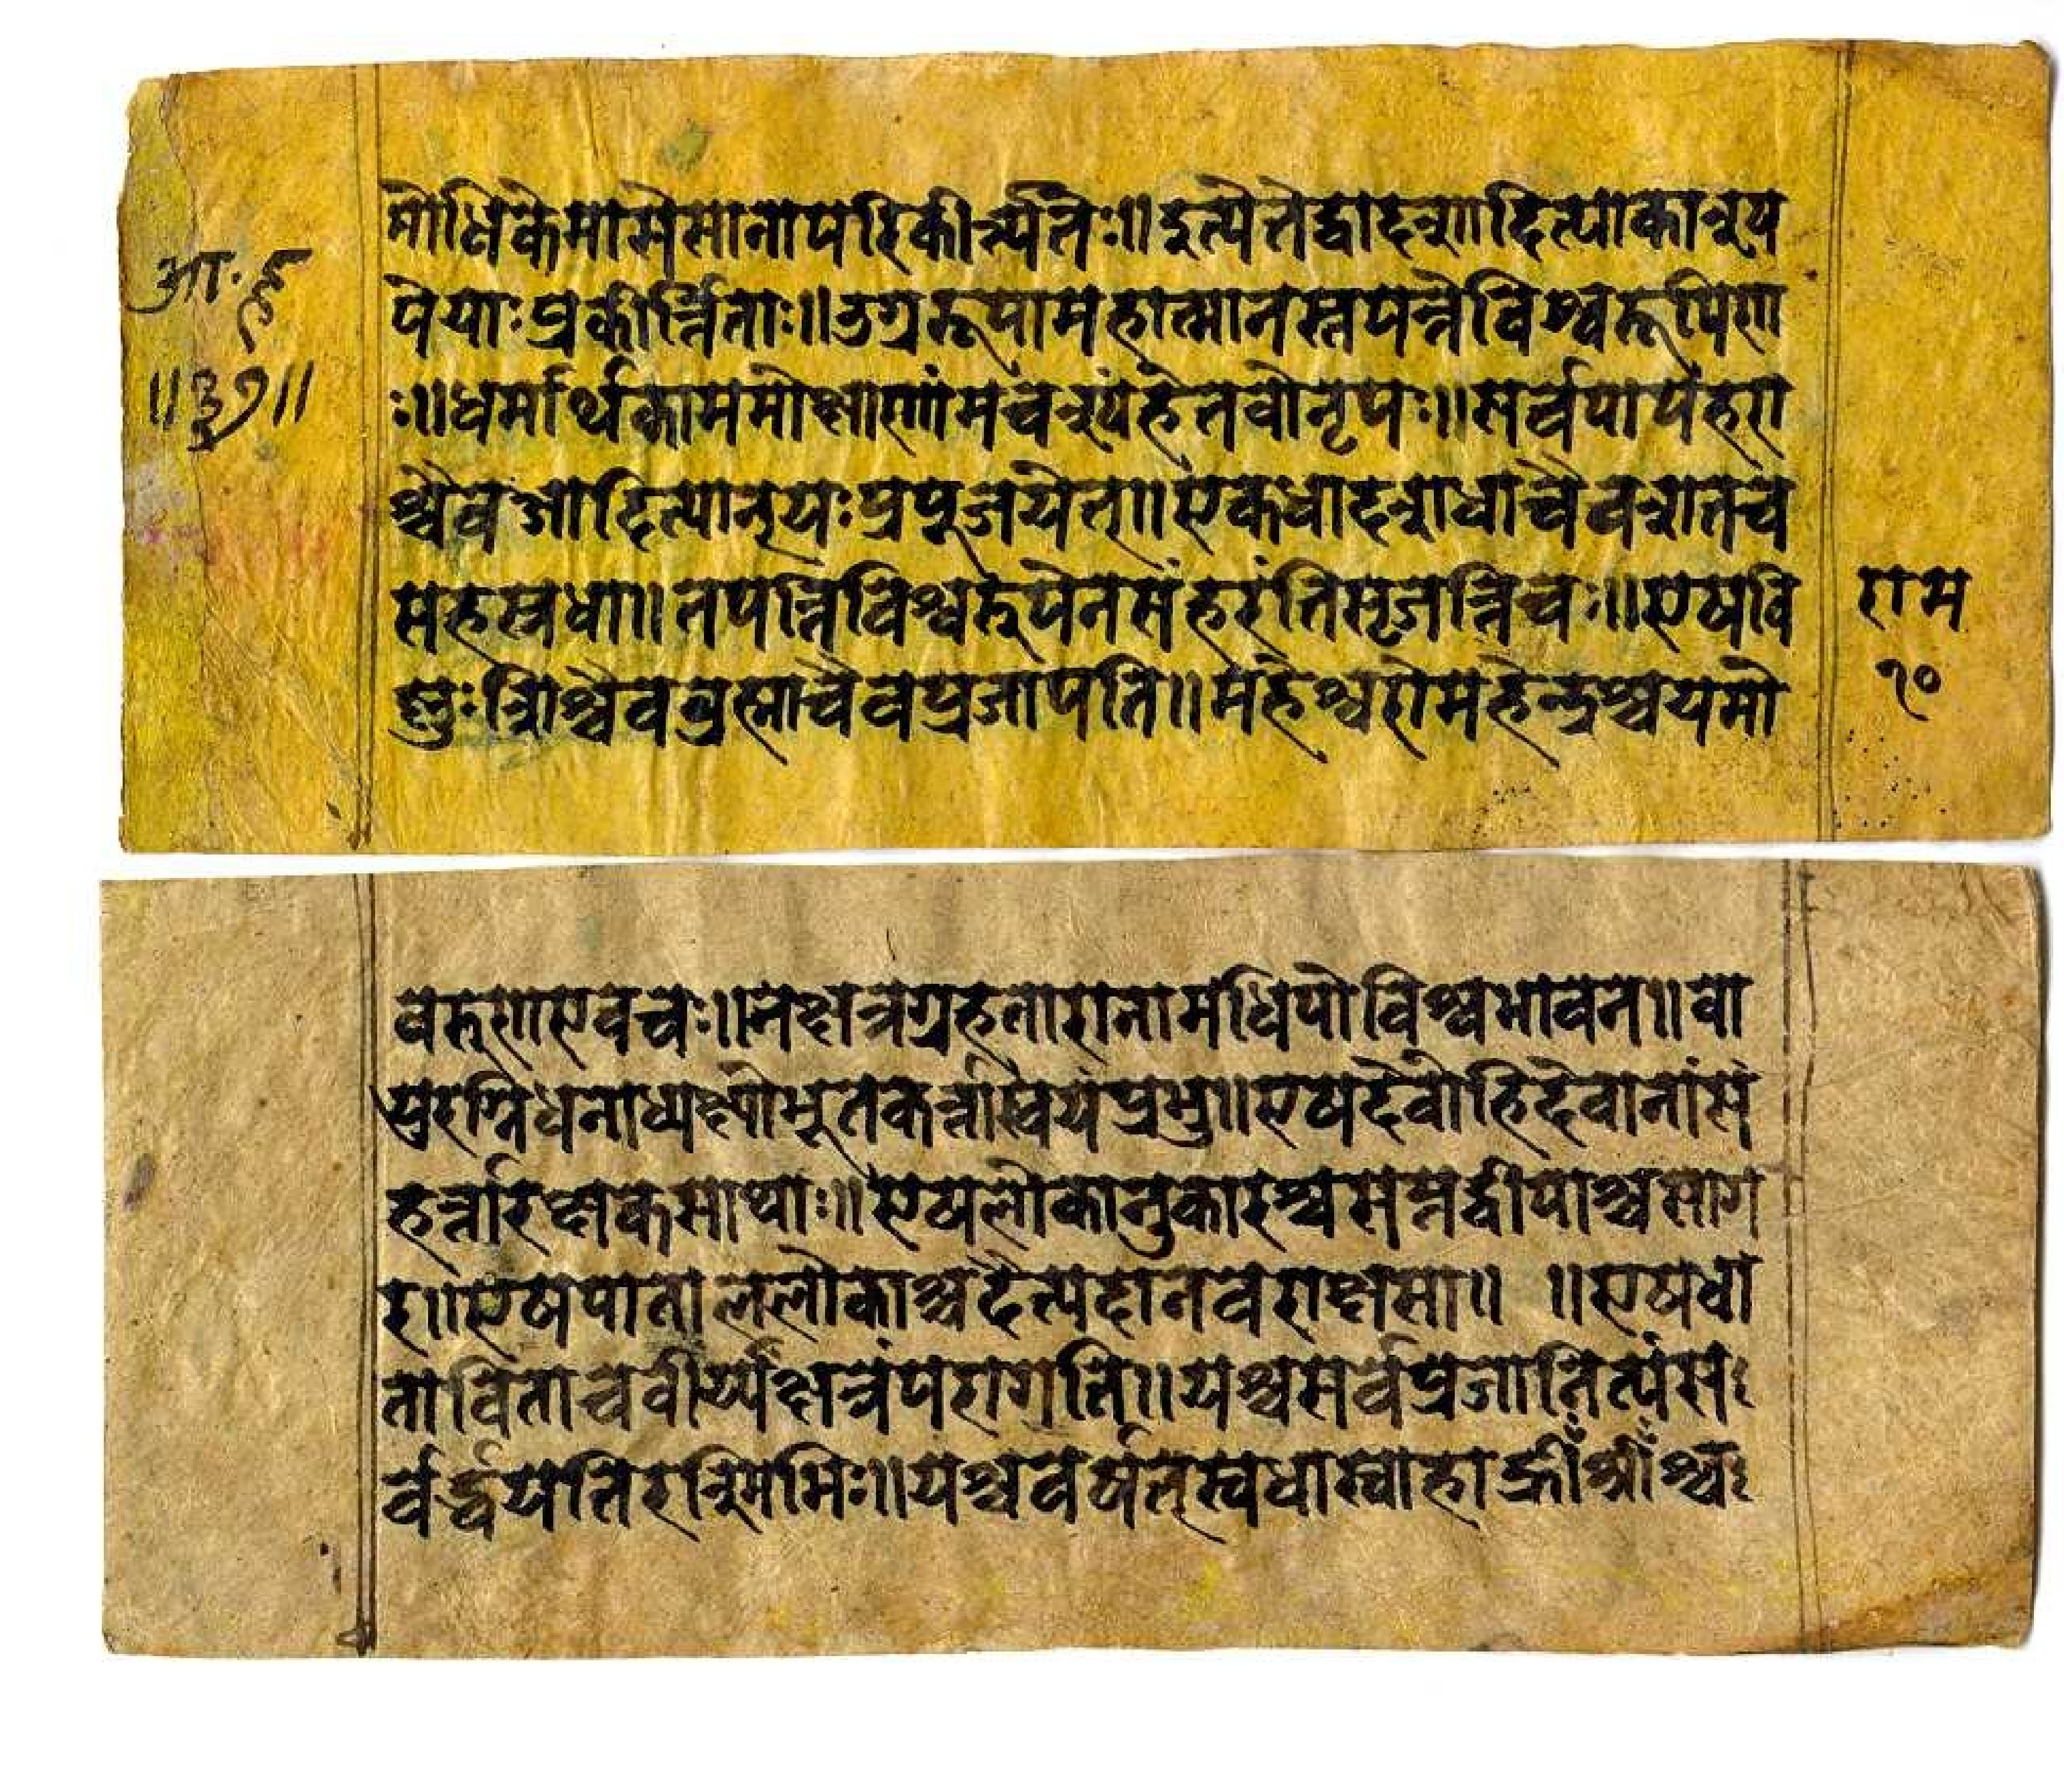 आ. हृ
॥३७॥
मोधिकेमासेमानापरिकीर्त्यतेः॥इत्येतेद्वादशादित्याकाश्यप
पेयाःप्रकीर्त्तिताः॥उग्ररूपामहात्मानस्तपन्तेविश्वरूपिणा
ः॥धर्मार्थकाममोक्षाणांमंचश्रूपंहेतवोनृपः॥सर्वपापंहरा
श्चैवआदित्यानृयःप्रपूजयेत्॥एकधादशधाचैवशतच
सहस्त्रधा॥तपन्तिविश्वरूपेनसंहरंतिसृजन्तिचः॥एषवि
ष्णुःशिश्चैवव्रह्माचैवप्रजापति॥महेश्वरोमहेन्द्रश्चयमो
राम
१०
वरूणाएवचः॥नक्षत्रग्रहतारानामधिपोविश्वभावन॥वा
युरग्निधनाध्यक्ष्योभूतकर्त्तास्वयंप्रभु॥एषदेवोहिदेवानांसं
हर्त्तारक्षकसाथाः॥एषलोकानुकारश्चसप्तद्वीपाश्चसाग
र॥एषपाताललोकाश्चदैत्यदानवराक्षसा॥ ॥एषधा
ताविताचवीर्य्यक्षत्रंपरागति॥यश्चसर्वप्रजानित्यंसः
र्वर्द्धयतिरश्मिमभिः॥यश्चवर्षत्स्वधास्वाहाह्रीँश्रीँश्चः